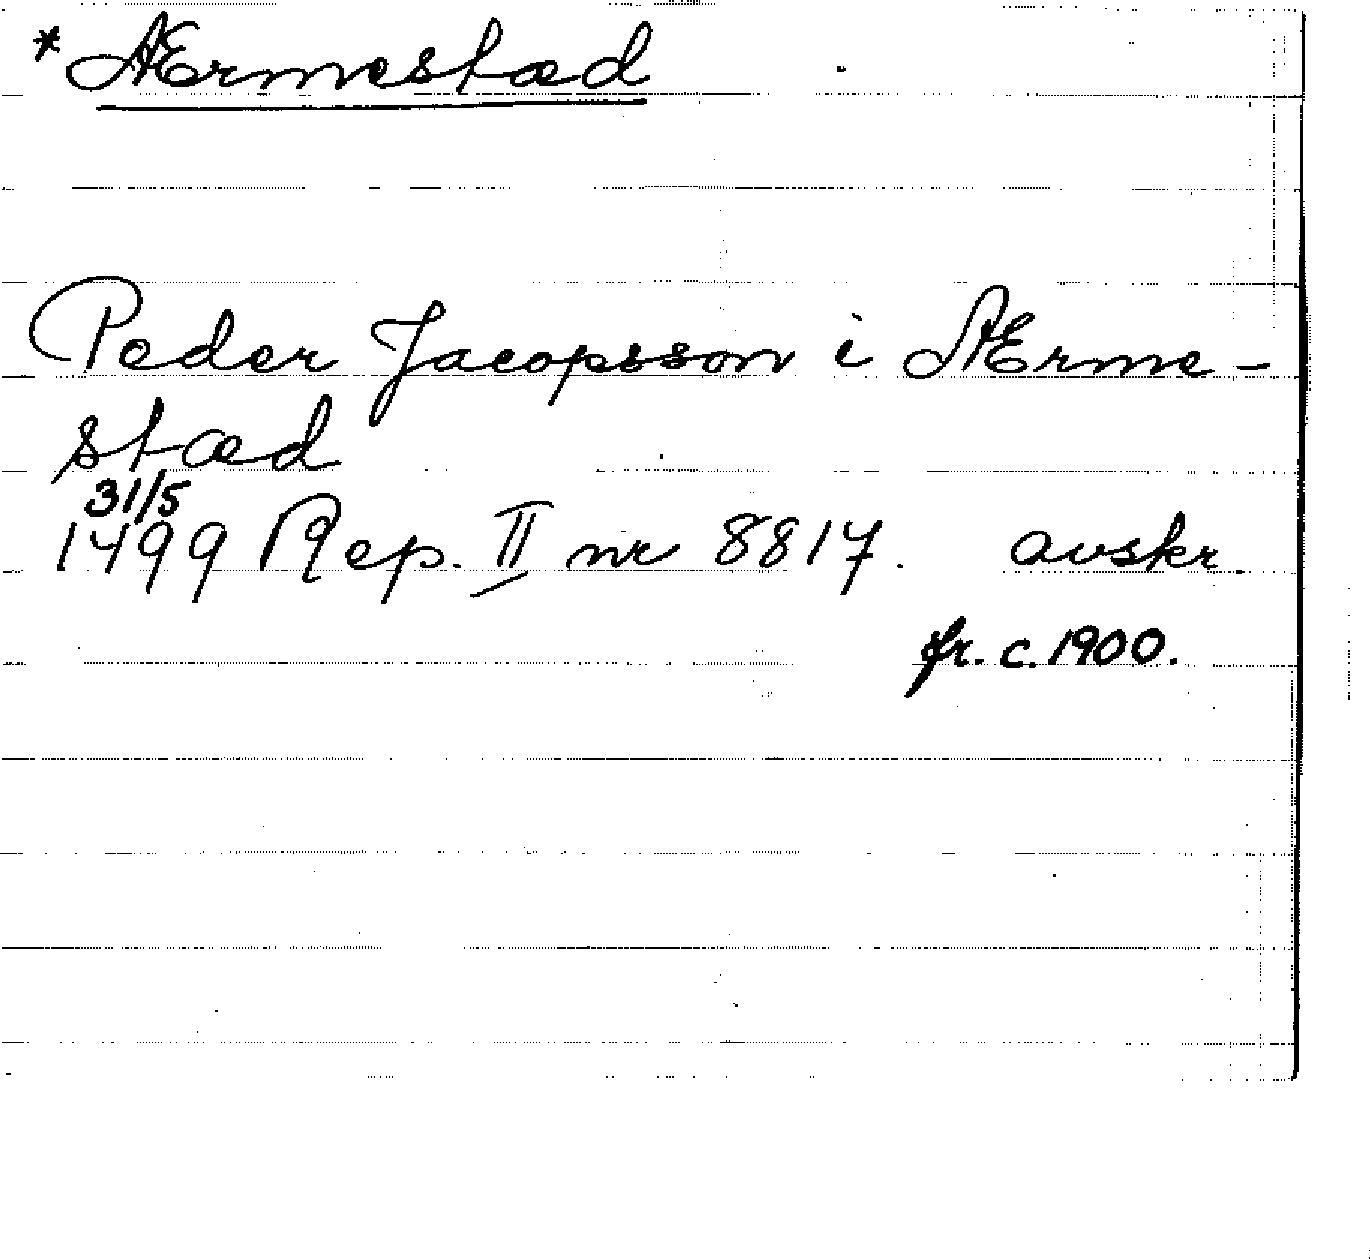 * Ærmestæd
Peder Jacopsson i Ærme-
stæd
31/5
1499 Rep. II nr 8817. avskr.
fr. c. 1900.